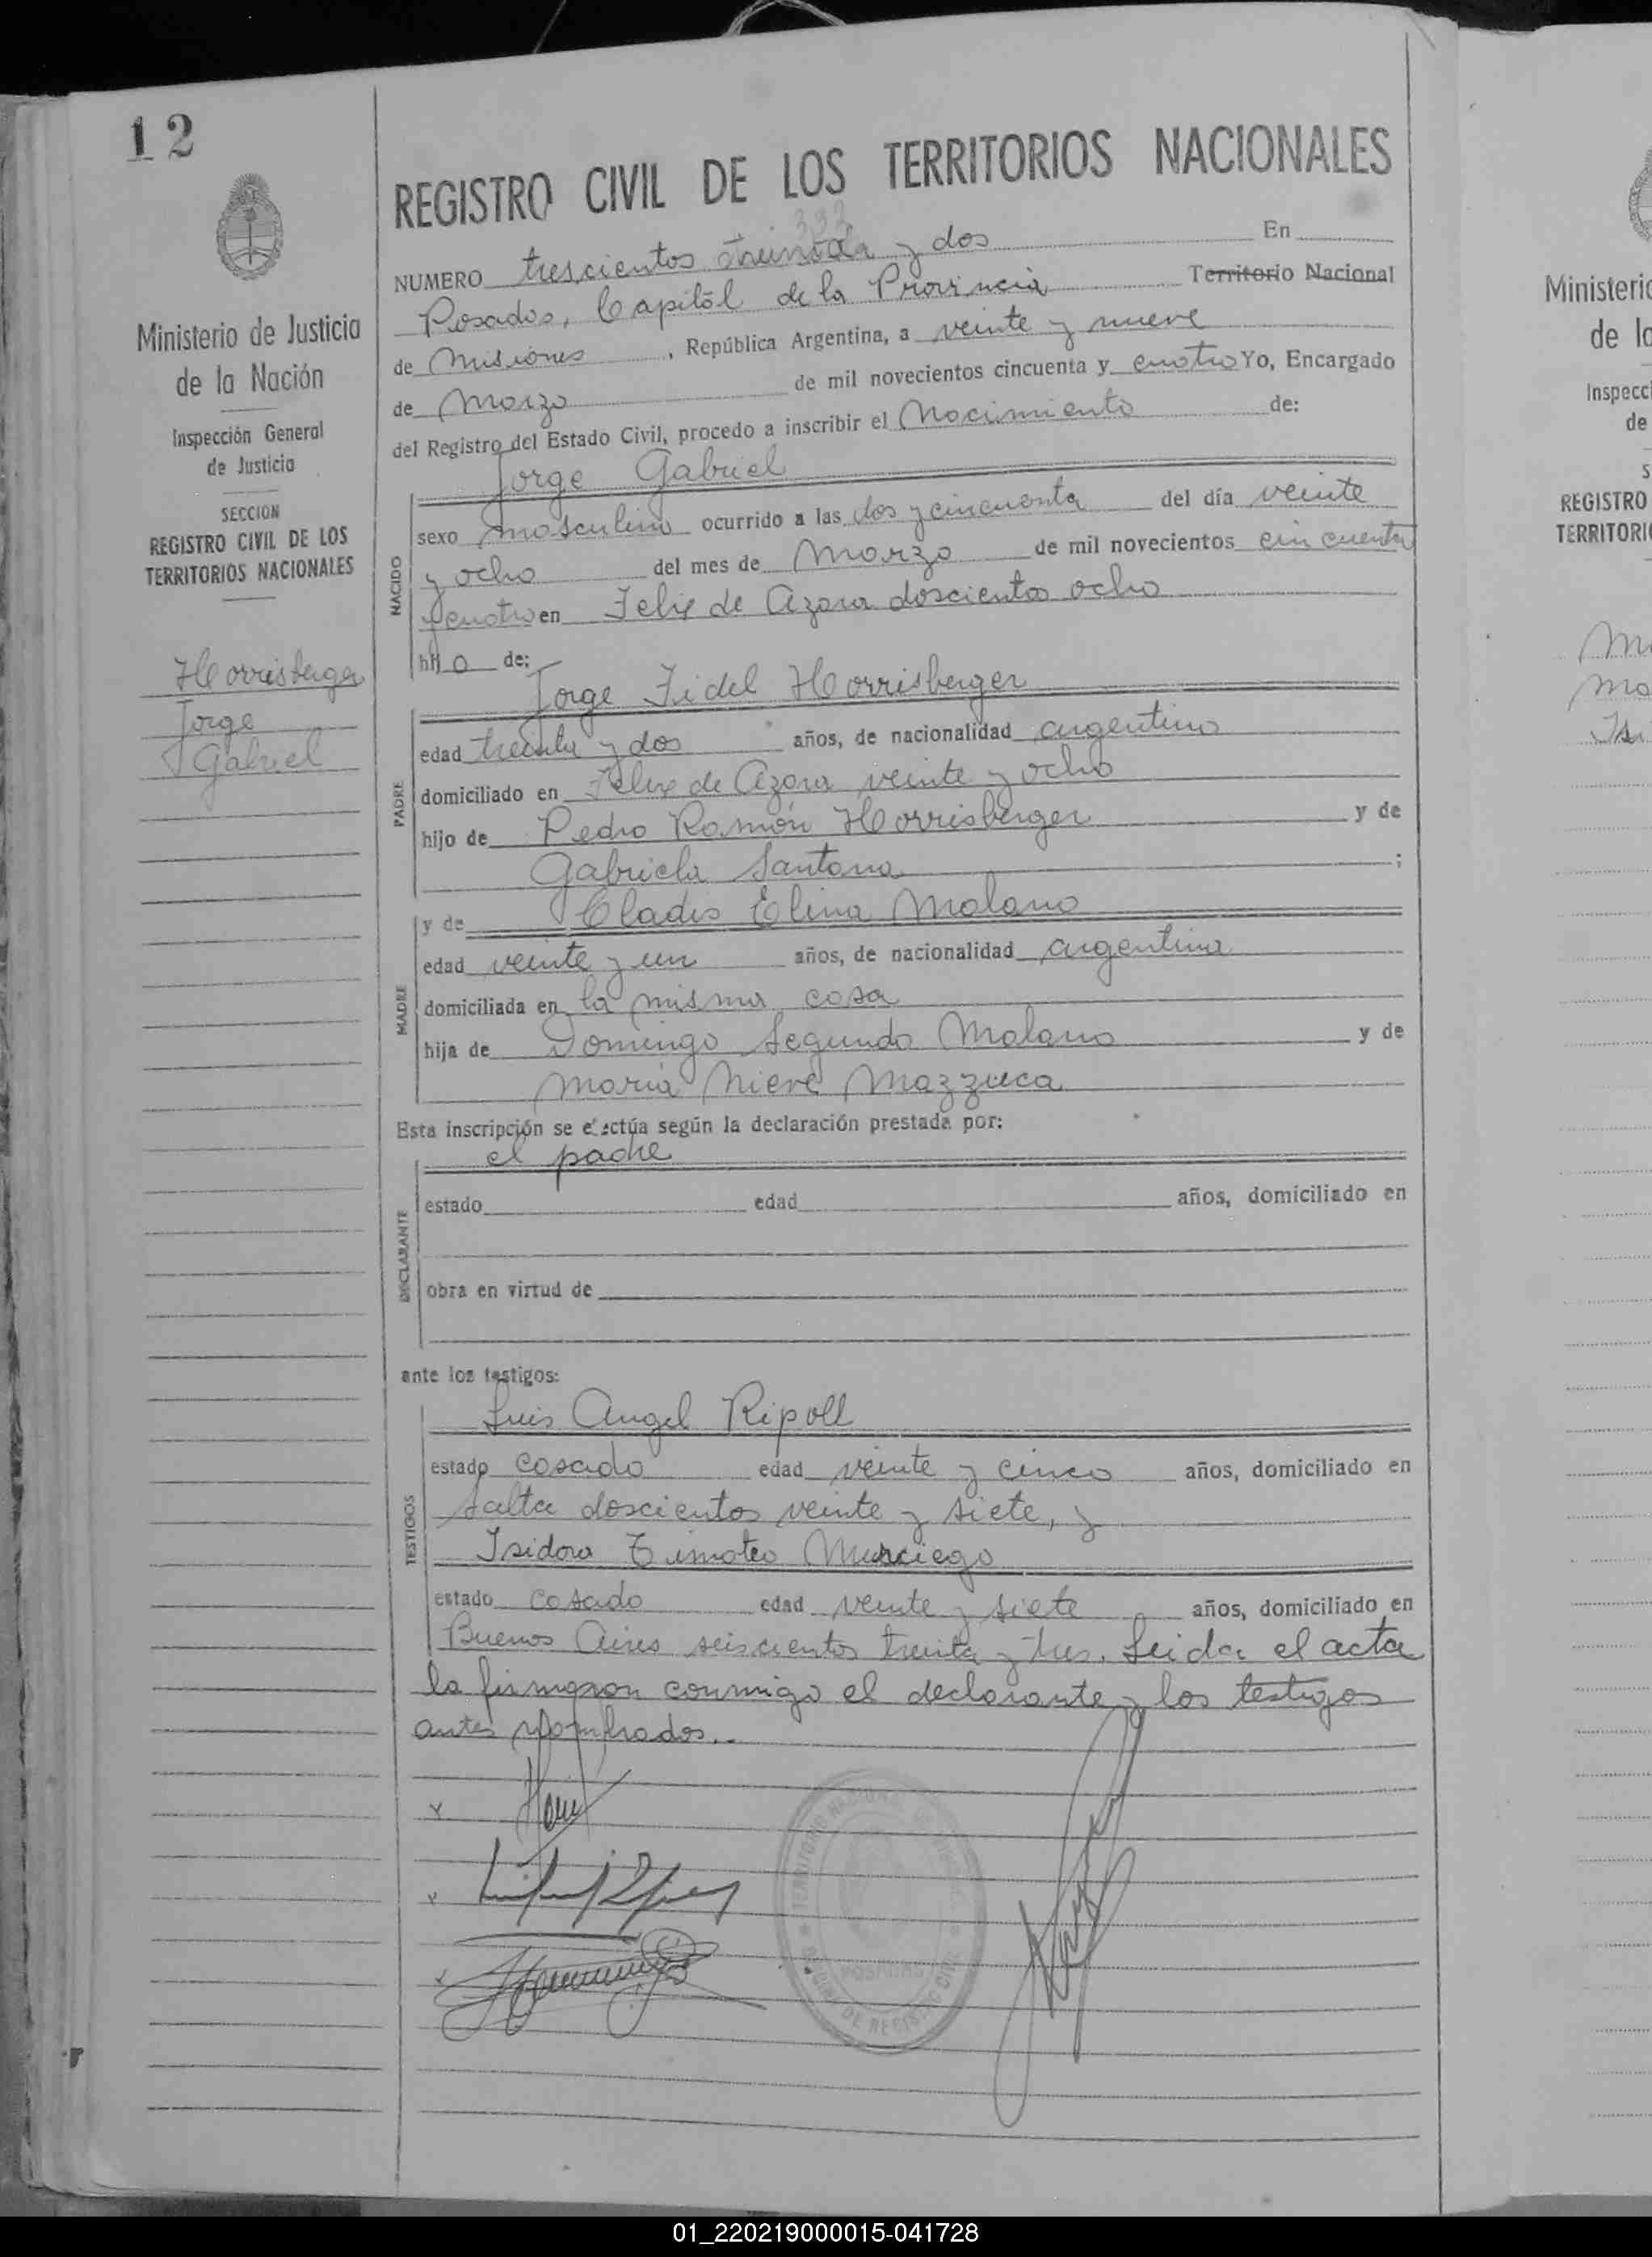 12
REGISTRO CIVIL DE LOS TERRITORIOS NACIONALES
332
NUMERO trescientos treinta y dos En
Posadas, Capital de la Provincia Territorio Nacional
de Misiones, República Argentina, a veinte y nueve
de Marzo de mil novecientos cincuenta y cuatro Yo, Encargado
del Registro del Estado Civil, procedo a inscribir el Nacimiento de:
Jorge Gabriel
NACIDO
sexo masculino ocurrido a las dos y cincuenta del día veinte
y ocho del mes de Marzo de mil novecientos cincuenta
y cuatro en Felix de Azara doscientos ocho
hijo de:
Jorge Fidel Horrisberger
PADRE
edad treinta y dos años, de nacionalidad argentino
domiciliado en Felix de Azara veinte y ocho
hijo de Pedro Ramón Horrisberger y de
Gabriela Santana;
MADRE
y de Gladis Elina Molano
edad veinte y un años, de nacionalidad argentina
domiciliada en la misma casa
hija de Domingo Segundo Molano y de
Maria Nieve Mazzuca
Esta inscripción se efectúa según la declaración prestada por:
el padre
DECLARANTE
estado edad años, domiciliado en
obra en virtud de
ante los testigos:
Luis Angel Ripoll
TESTIGOS
estado casado edad veinte y cinco años, domiciliado en
Salta doscientos veinte y siete, y
Isidoro Timoteo Murciego
estado casado edad veinte y siete años, domiciliado en
Buenos Aires seiscientos treinta y tres. Leida el acta
la firmaron conmigo el declarante y los testigos
antes nombrados..
POSADAS
Ministerio de Justicia
de la Nación
Inspección General
de Justicia
SECCION
REGISTRO CIVIL DE LOS
TERRITORIOS NACIONALES
Horrisberger
Jorge
Gabriel
Ministerio
de
Inspecc
de
REGISTRO
TERRITORI
01_220219000015-041728